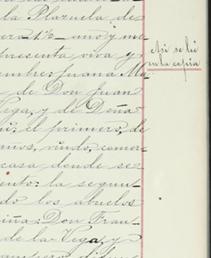 la Plazuela de
era 1½ uno y me
trecenta viva y
mbre: Juana Ma
de Don Juan
Vega, y de Doña
el primero, de
nios, viudo, comer
casa donde se
ento: la segun
do los abuelos
iña: Don Fran
de la Vega, y
Asi se lée
en la copia